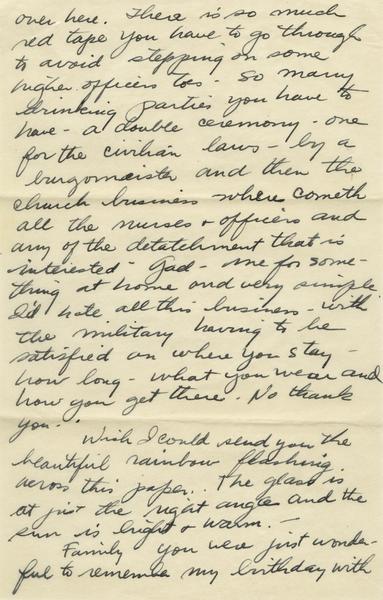 over here. There is so much
red tape you have to go through
to avoid stepping on some
higher officers toes - So many
drinking parties you have to
have - a double ceremony - one
for the civilian laws - by a
burgomeister and then the
church business where cometh
all the nurses + officers and
any of the detatchment that is
interested - Gad - me for some-
thing at home and very simple
I'd hate all this business - with
the military having to be
satisfied on where you stay -
how long - what you wear and
how you get there. No thank
you. -
Wish I could send you the
beautiful rainbow flashing
across this paper. The glass is
at just the right angle and the
sun is bright & warm. -
Family you were just wonder-
ful to remember my birthday with